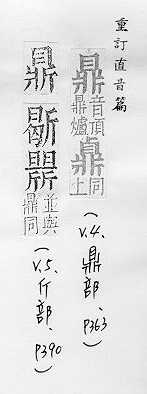 重訂直音篇
鼎音頂鼎爐鼑同上(V.4、鼎部、P363)
並與鼎同(V.5、斤部、P390)